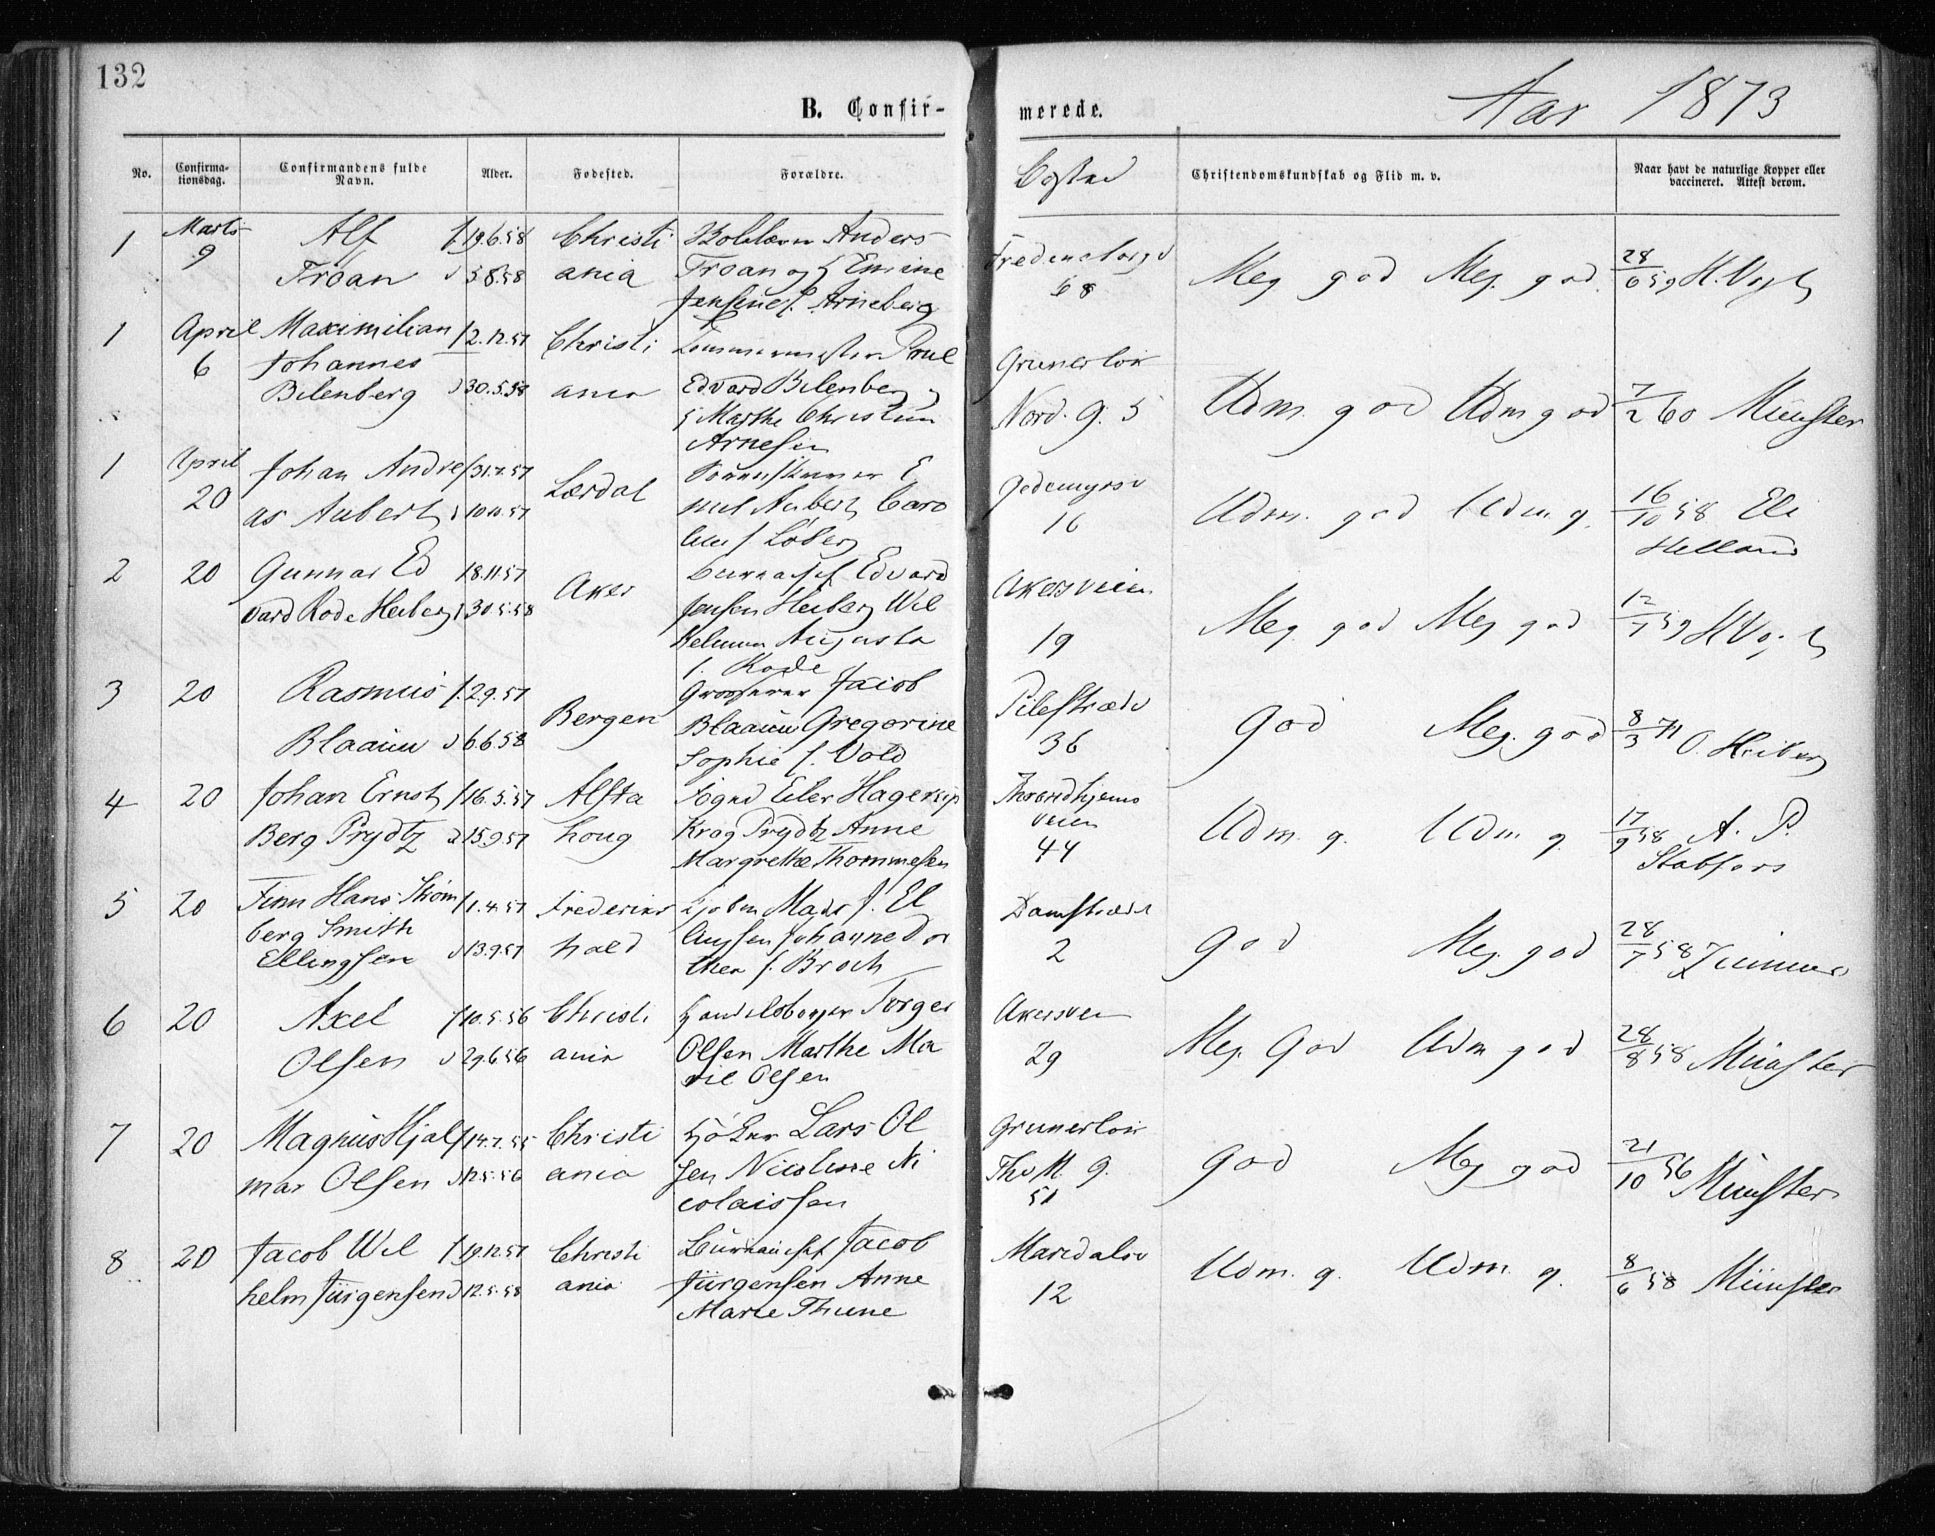 132
B. Confir-
merede.
Aar 1873
No.
Confirma-
tionsdag.
Confirmandens fulde
Navn.
Alder.
Fødested.
Forældre.
Bosted
Christendomskundskab og Flid m. v.
Naar havt de naturlige Kopper eller
vaccineret. Attest derom.
1 Marts 9
Alf
Troan
f 19.6.58
d 5.8.58
Christi
ania
Anders
Troan og H Emine
Jensine f. Arneberg
68
Meg god Meg. god
28/6 59 H. Vogt
1 April 6
Maximilian
Johannes
Bilenberg
f 2.12.57
d 30.5.58
Christi
ania
Tommermester Poul
Edvard Bilenberg
Marthe Christine
Arnesen
Grunerløk
Nord. G. 5
Udm. god Udm god
7/2 60 Münster
1 April 20
Johan Andre
as Aubert
f 31.7.57
d 10.10.57
Lærdal
Aubert Caro
f Løberg
16
Udm. god Udm g.
16/10 58 Eli
Helland
2 20
Gunnar Ed
vard Rode Heiberg
f 8.11.57
d 30.5.58
Aker
Edvard
Jensen Heiberg Wil
helmine Augusta
f. Rode
Akersveien
19
Meg. god Meg god
12/7 59 H Vogt
3 20
Rasmus
Blaauw
f. 2.9.57
d 6.6.58
Bergen
Grosserer Jacob
Blaauw Gregorine
Sophie f. Vold
Pilestrædet
36
God Meg. god
8/3 71 O. Heiberg
4 20
Johan Ernst
Berg Prydtz
f 16.5.57
d 15.9.57
Alsta
houg
Fogned Eiler Hagerup
Krog Prydtz Anne
Margrethe Thommesen
Throndhjems
veien
44
Udm. g. Udm. g
17/9 58 A. P.
5 20
Finn Hans Strøm
berg Smith
Ellingsen
f 1.4.57
d 13.9.57
Frederiks
hald
Mads J. El
lingsen Johanne Do
thea f. Broch
Damstrædet
2
God Meg. god
28/7 58
6 20
Axel
Olsen
f 10.5.56
d 29.6.56
Christi
ania
Handelsborger Torger
Olsen Marthe Ma
rie Olsen
Akersvei
29
Meg. God Udm god
28/8 58 Münster
7 20
Magnus Hjal
mar Olsen
f 14.7.55
d 12.5.56
Christi
ania
Høker Lars Ol
sen Nicoline Ni
colaissen
Grunerløk
Thv M. g.
51
God Meg god
21/10 56 Münster
8 20
Jacob Wil
helm Jürgensen
f 19.12.57
d 12.5.58
Christi
ania
Bureauchef Jacob
Jürgensen Anne
Marie Thune
Maridalsv
12
Udm. g. Udm. g.
8/6 58 Münster